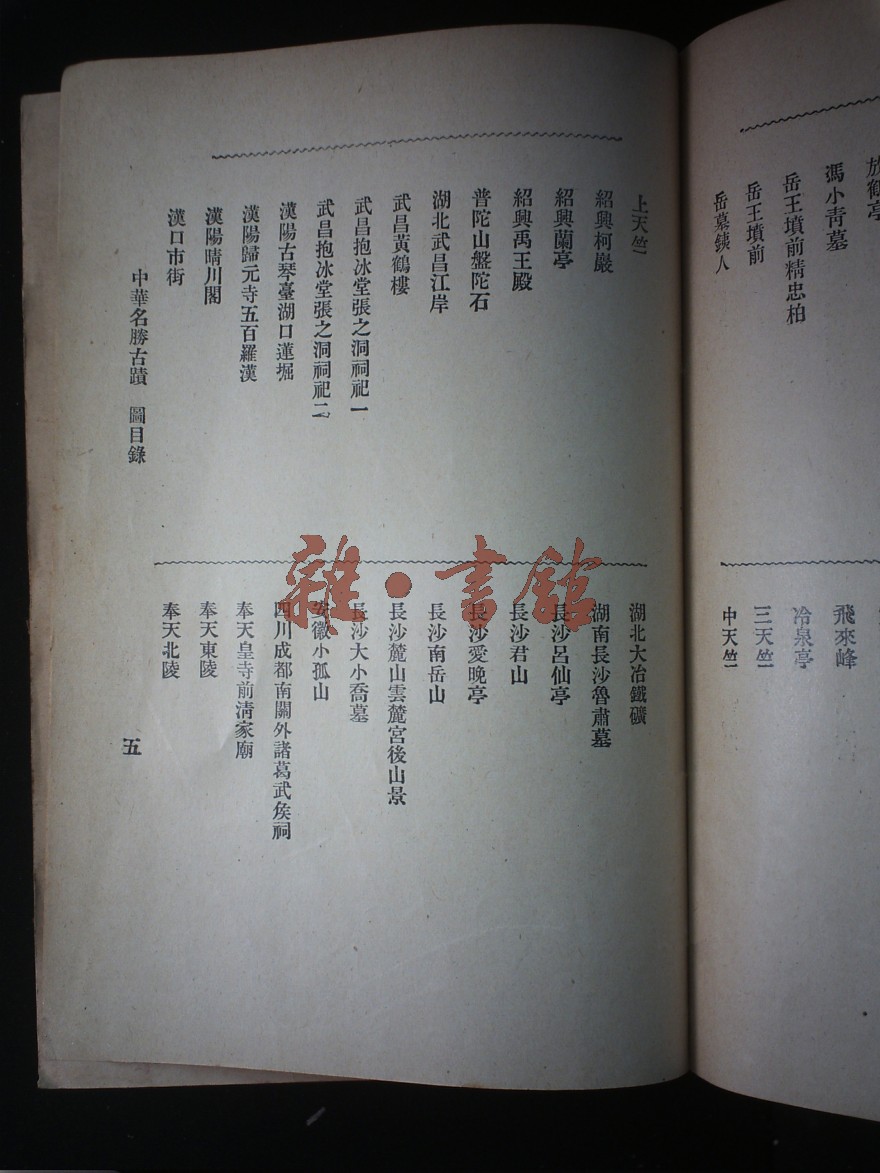 放鶴亭
馮小靑墓
岳王墳前精忠柏
岳王墳前
岳墓鐵人
飛來峰
冷泉亭
三天竺
中天竺
上天竺
紹興柯巖
紹興蘭亭
紹興禹王殿
普陀山盤陀石
湖北武昌江岸
武昌黃鶴樓
武昌抱冰堂張之洞祠祀一
武昌抱冰堂張之洞祠祀二
漢陽古琴臺湖口蓮堀
漢陽歸元寺五百羅漢
漢陽晴川閣
漢口市街
湖北大冶鐵礦
湖南長沙魯肅墓
長沙呂仙亭
長沙君山
長沙愛晚亭
長沙南岳山
長沙麓山雲麓宮後山景
長沙大小喬墓
安徽小孤山
四川成都南關外諸葛武侯祠
奉天皇寺前淸家廟
奉天東陵
奉天北陵
中華名勝古蹟 圖目錄
五
雜·書館